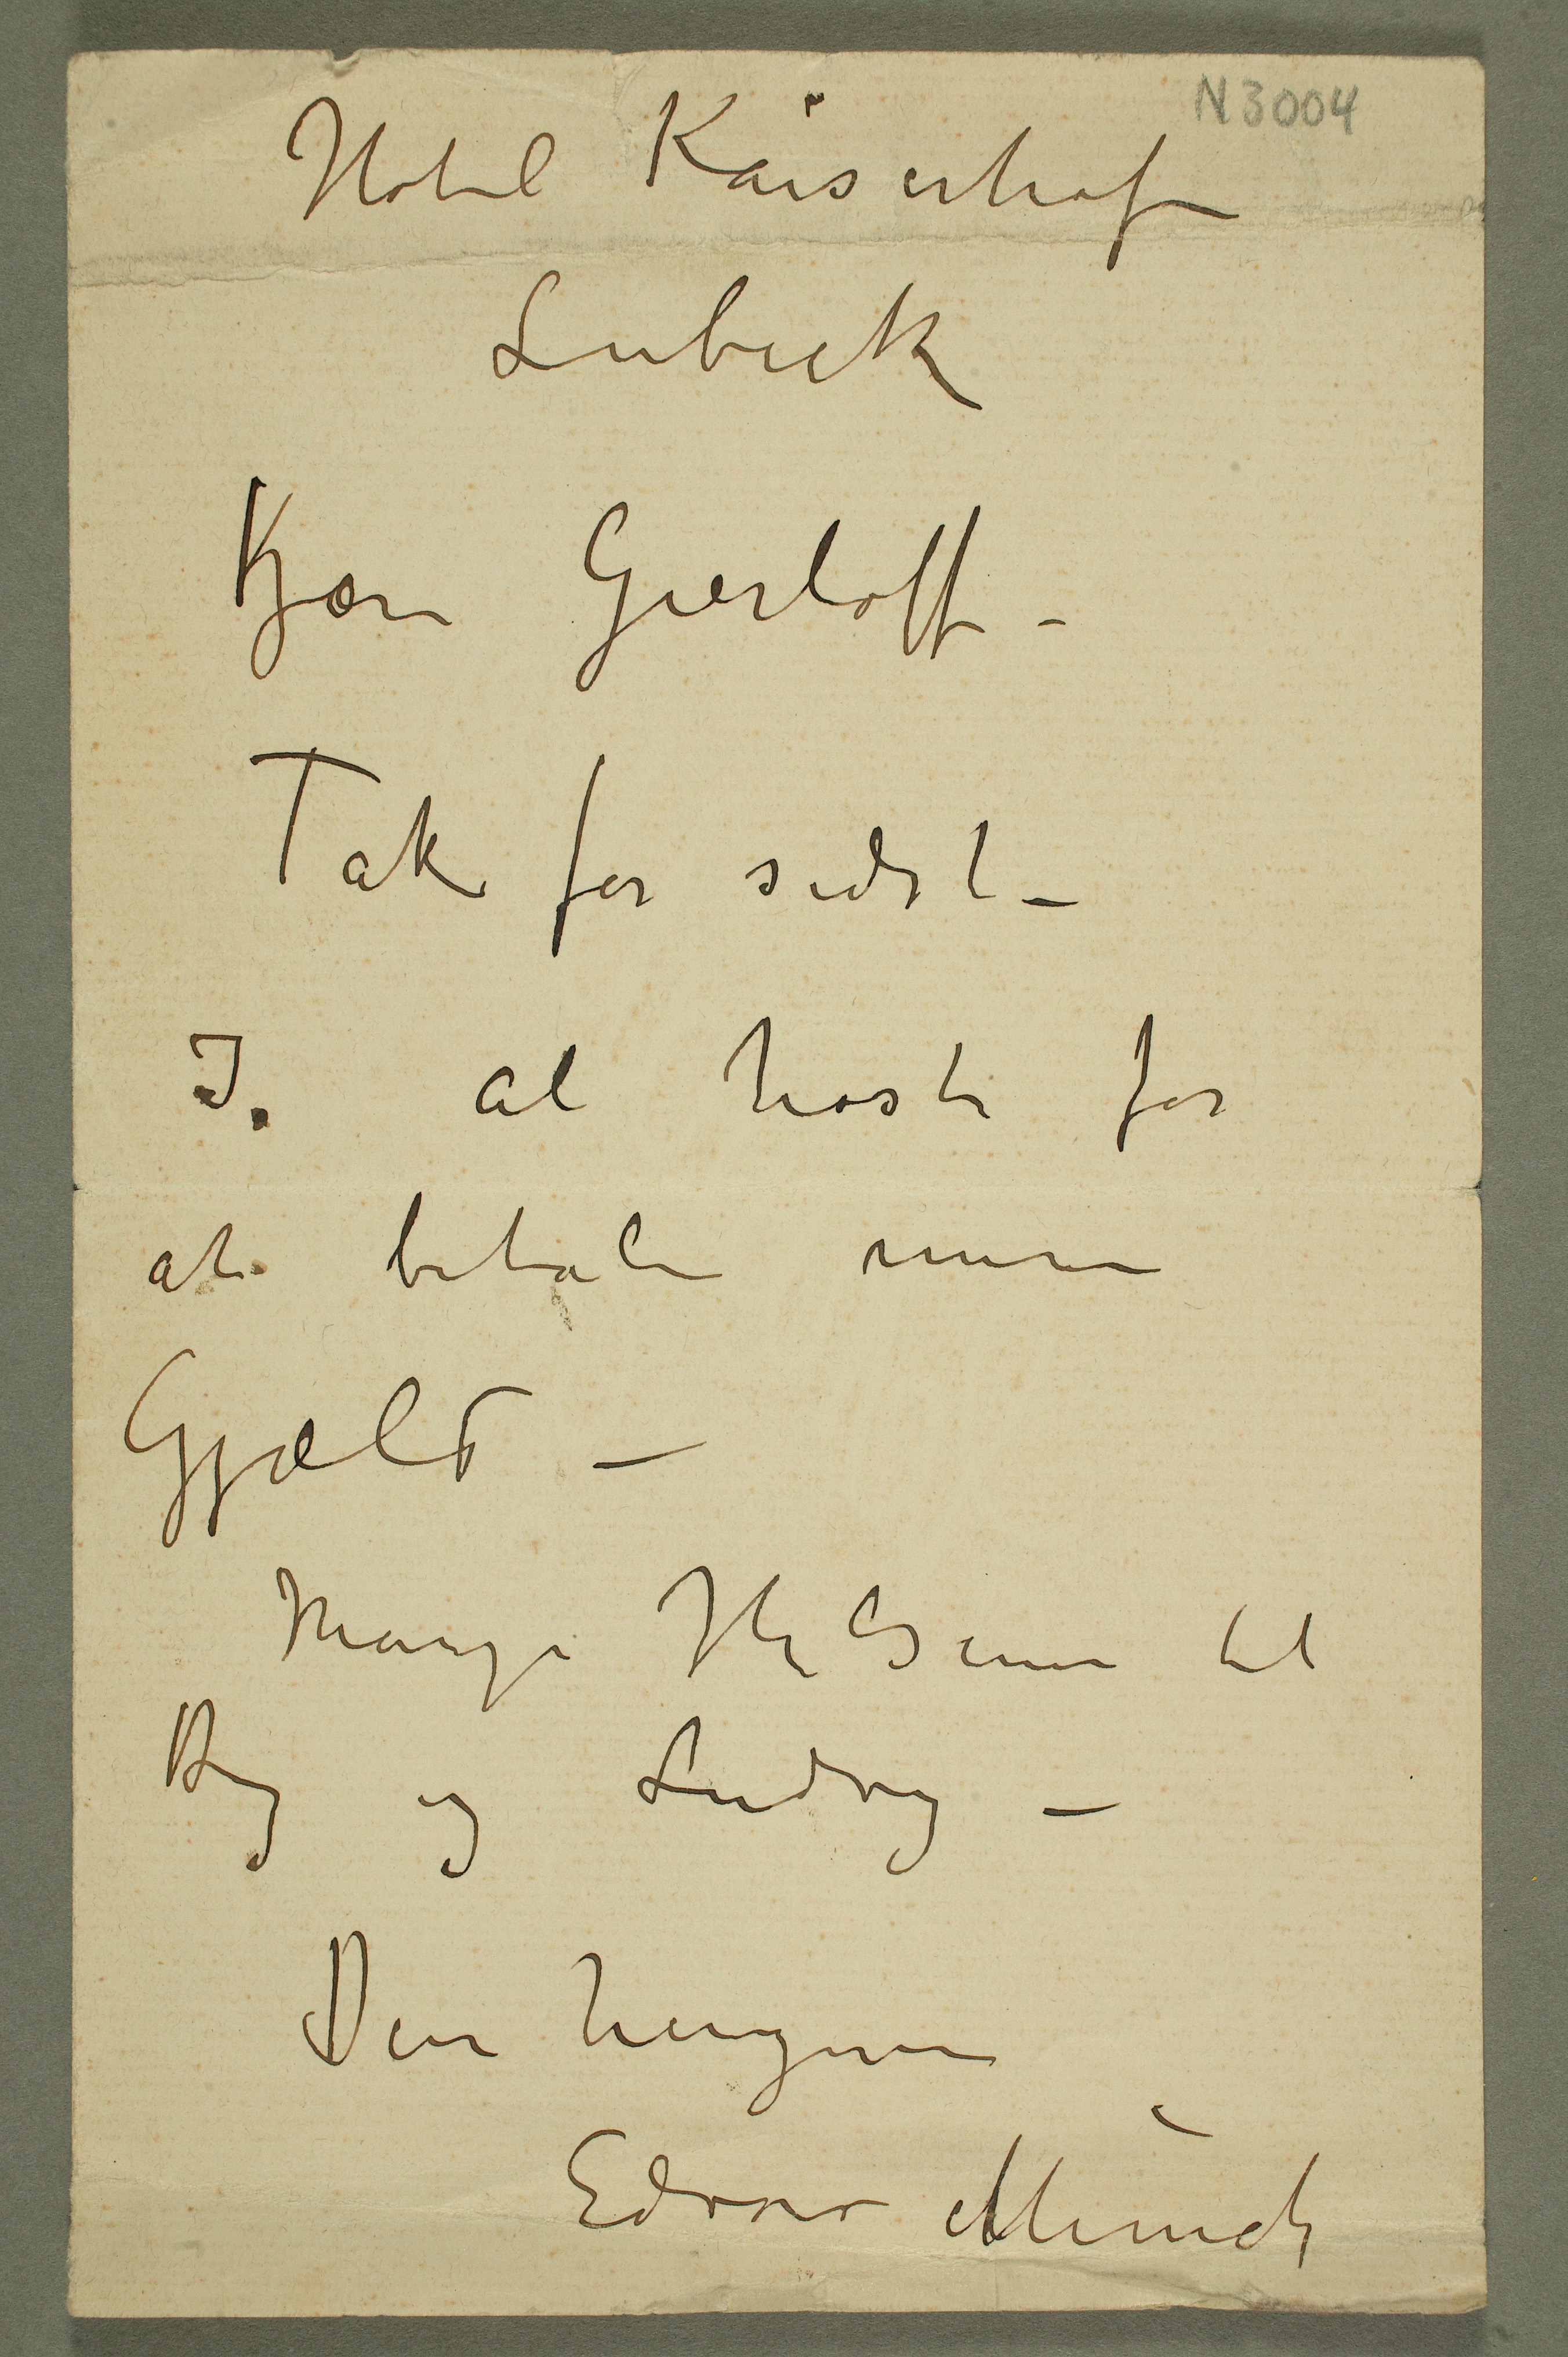 N 3004
Hotel Kaiserhof
Lubeck
Kjære Gierløff –
Tak for sidst –
I al hast for
at betale min
Gjæld –
Mange Hilsener til
Dig og Ludvig –
Din hengivne
Edvard Munch